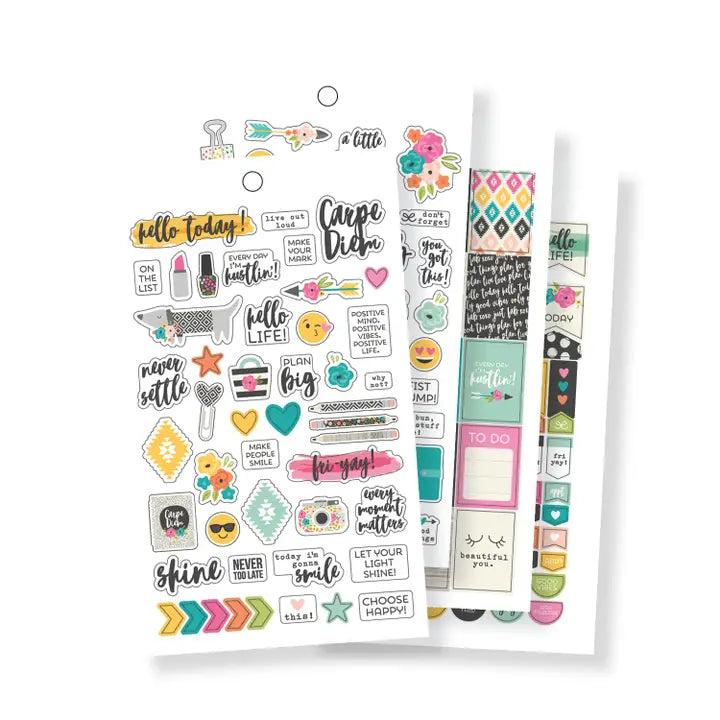 a little
hello today!
live out
loud
Carpe
Diem
ON
THE
LIST
MAKE
YOUR
MARK
EVERY DAY
I'M
hustlin'!
hello
LIFE!
POSITIVE
MIND.
POSITIVE
VIBES.
POSITIVE
LIFE.
never
settle
PLAN
big
why
not?
MAKE
PEOPLE
SMILE
fri-yay!
Carpe
Diem
every
moment
matters
shine
NEVER
TOO LATE
today i'm
gonna
smile
LET YOUR
LIGHT
SHINE!
this!
CHOOSE
HAPPY!
don't
forget
you
got
this!
FIST
BUMP!
bun,
stuff
EVERY DAY
I'M
hustlin'!
TO DO
beautiful
you.
hello
LIFE!
TODAY
fri
yay!
GOOD
VIBES